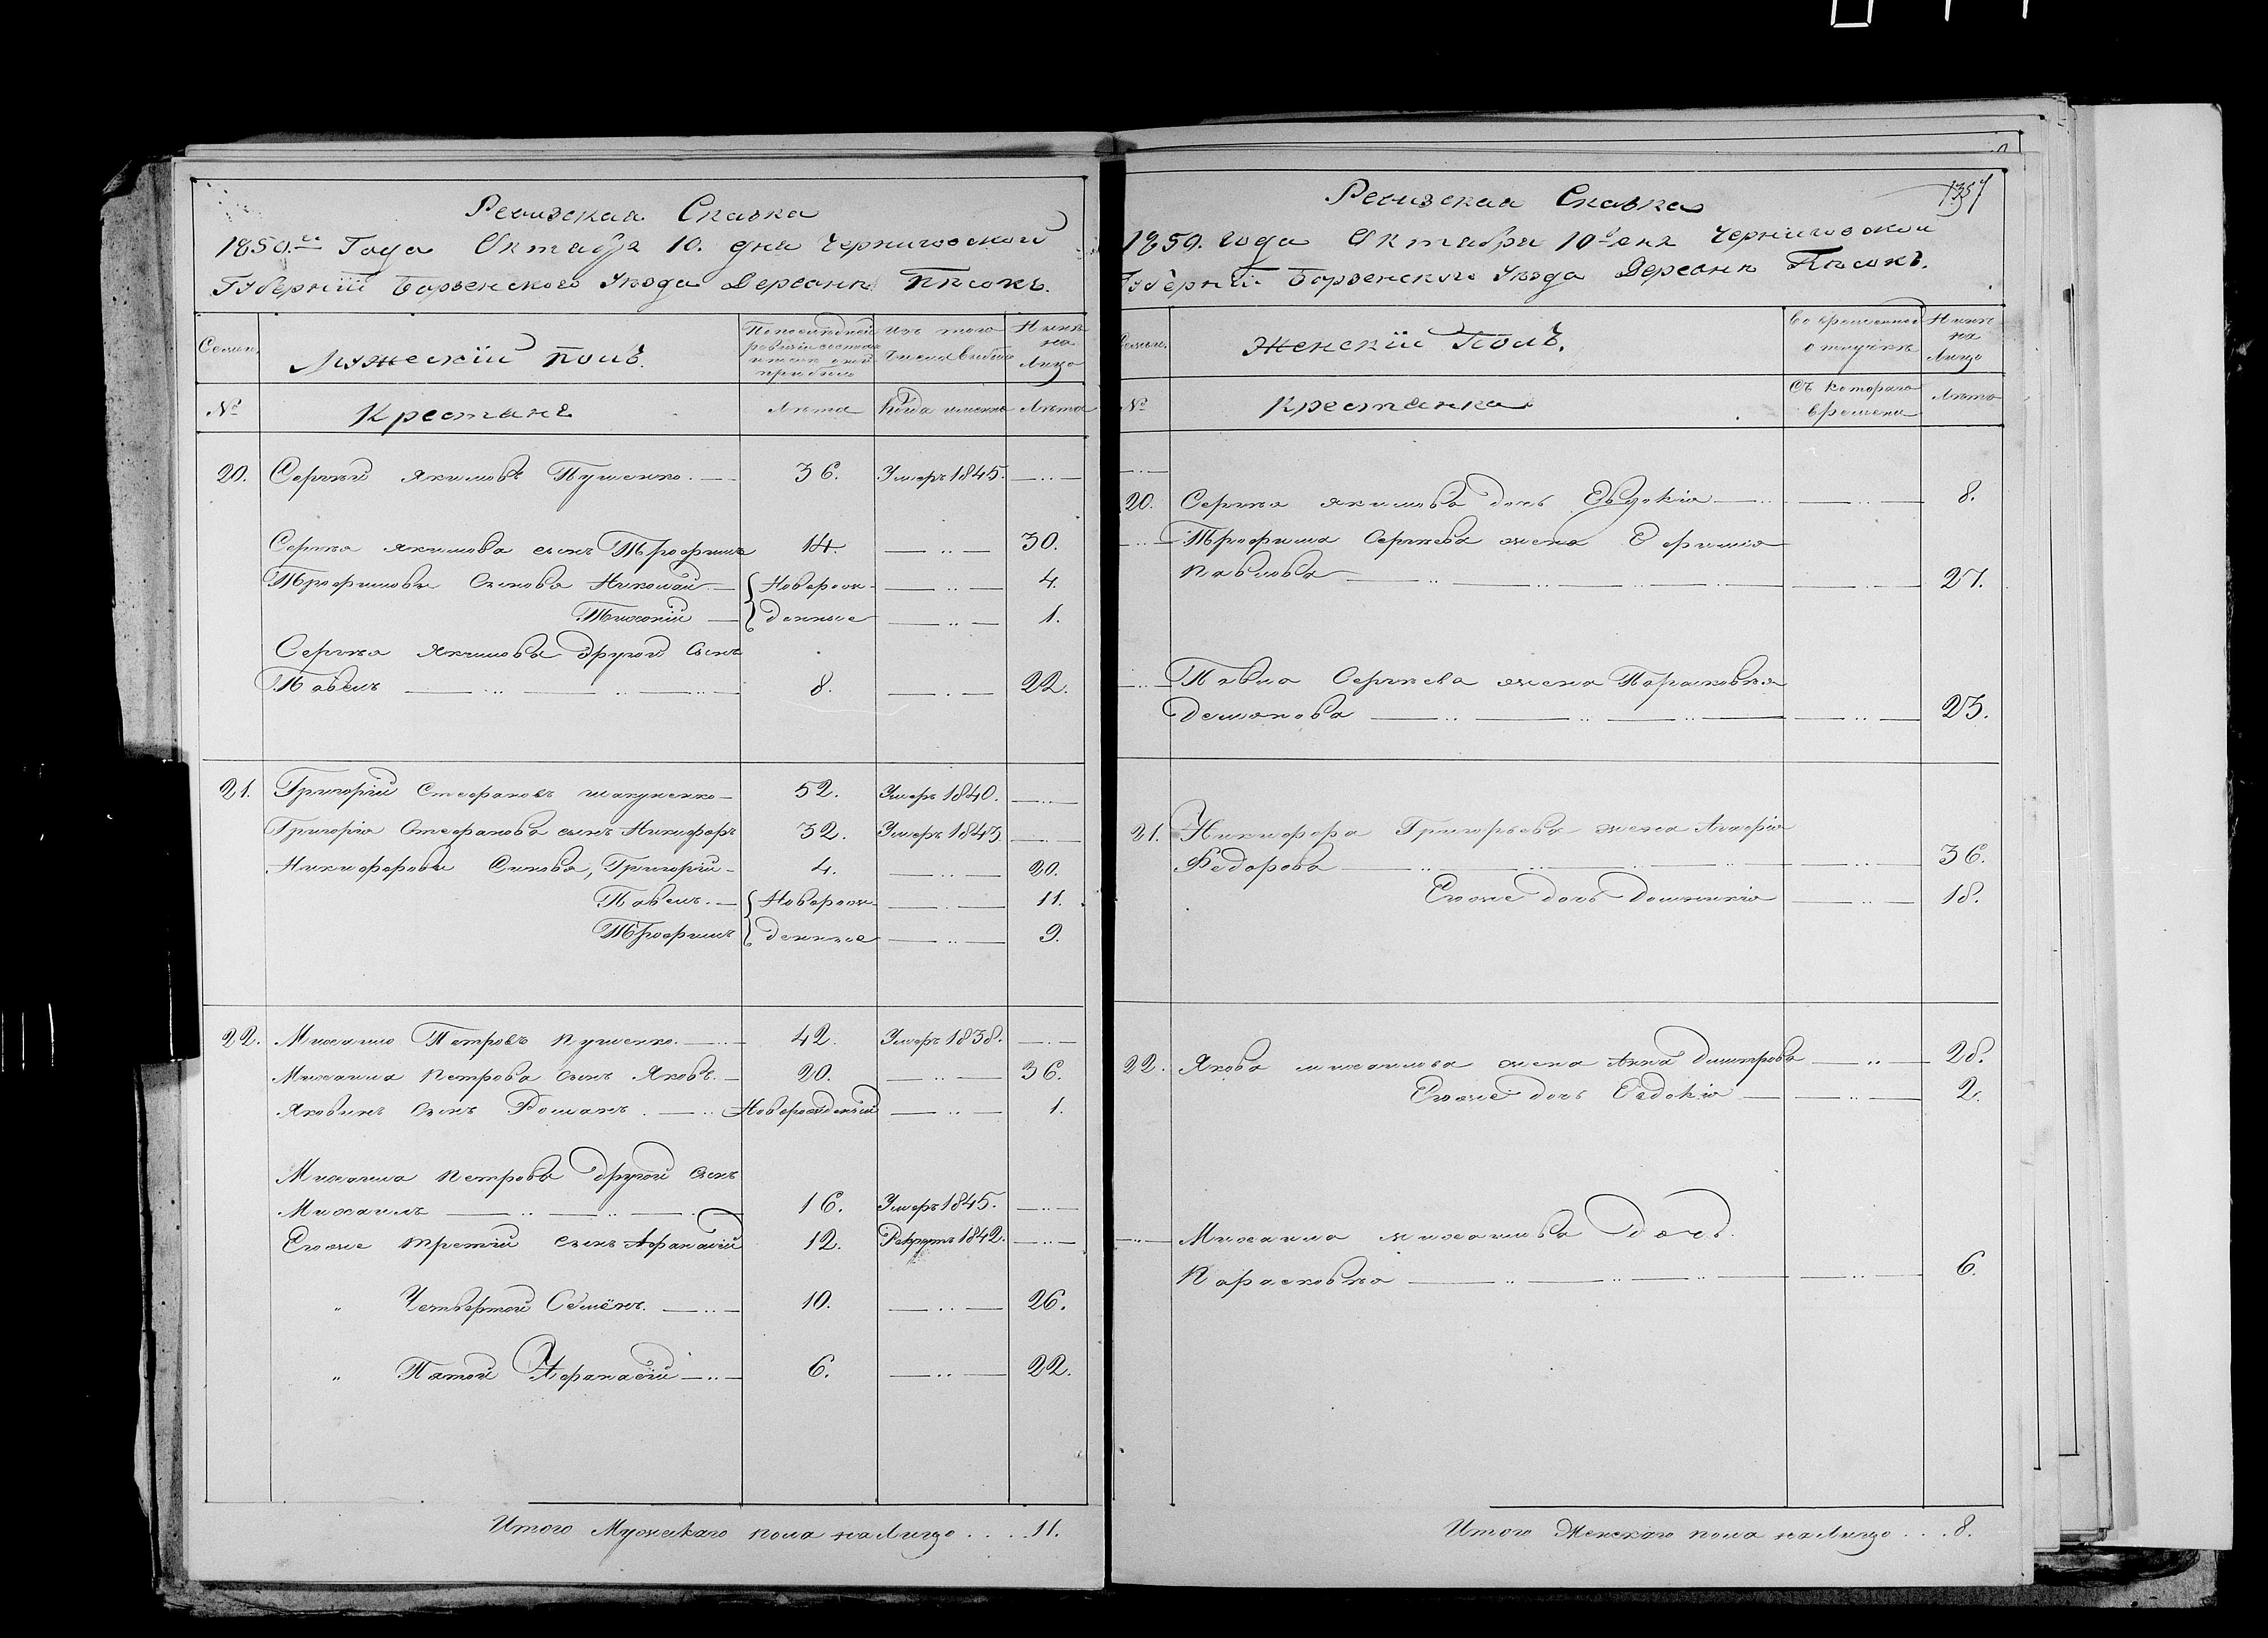 Ревизская Сказка
1850.го Года Октября 10. дня Черниговской
Губерніи Борзенского Уезда Деревни Пѣсокъ.
Семьи.
Мужескій полъ.
По последней
ревизіи состояло
и после оной
прибыло
Изъ того
числа выбыло
Нынѣ
на
Лицо
№
Крестьяне
Лѣта
Когда именно
Лѣта
20. Сергѣй Якимовъ Пушенко. 36. Умеръ 1845.
Сергѣя Якимова сынъ Трофимъ 14. 30.
Трофимовы Сыновья Николай Новорож- 4.
Тихоній денные 1.
Сергѣя Якимова другой Сынъ
Павелъ 8. 22.
21. Григорій Стефановъ 52. Умеръ 1840.
Григорія Стефанова сынъ Никифоръ 32. Умеръ 1843.
Никифоровы Синова, Григорій 4. 20.
Павелъ. Новорож- 11.
Трофимъ денные 9.
22. Михаило Петровъ Пушенко. 42. Умеръ 1838.
Михаила Петрова сынъ Яковъ. 20. 36.
Яковинъ Сынъ Романъ. Новорожденный 1.
Михаила Петрова другой Сынъ
Михаилъ 16. Умеръ 1845.
Егоже третій Сынъ Афанасій 12. Рекрутъ 1842.
" Четвертой Семёнъ. 10. 26.
" Пятой Афанасій 6. 22.
Итого Мужескаго пола на Лицо . . . . 11.
1357
Ревизская Сказка
1850. года Октября 10 дня Черниговской
Губерніи Борзенского Уезда Деревни Пѣсокъ.
Семьи.
Женскій Полъ.
Во временной
отлучкѣ
Нынѣ
на
Лицо
№
Крестьянка
Съ котораго
времени
Лѣта
20. Сергѣя Якимова дочь Евдокія 8.
Трофима Сергѣева жена Ефимія
Павлова 27.
Павла Сергѣева жена Парасковья
Демянова 23.
21. Никифора Григорьева жена Агафія
Федорова 36.
Егоже дочь Домникія 18.
22. Якова Михаилова жена Анна Дмитрова 28.
Егоже дочь Евдокія 2.
Михаила Михаилова Дочь
Парасковья 6.
Итого Женскаго пола на Лицо . . . 8.